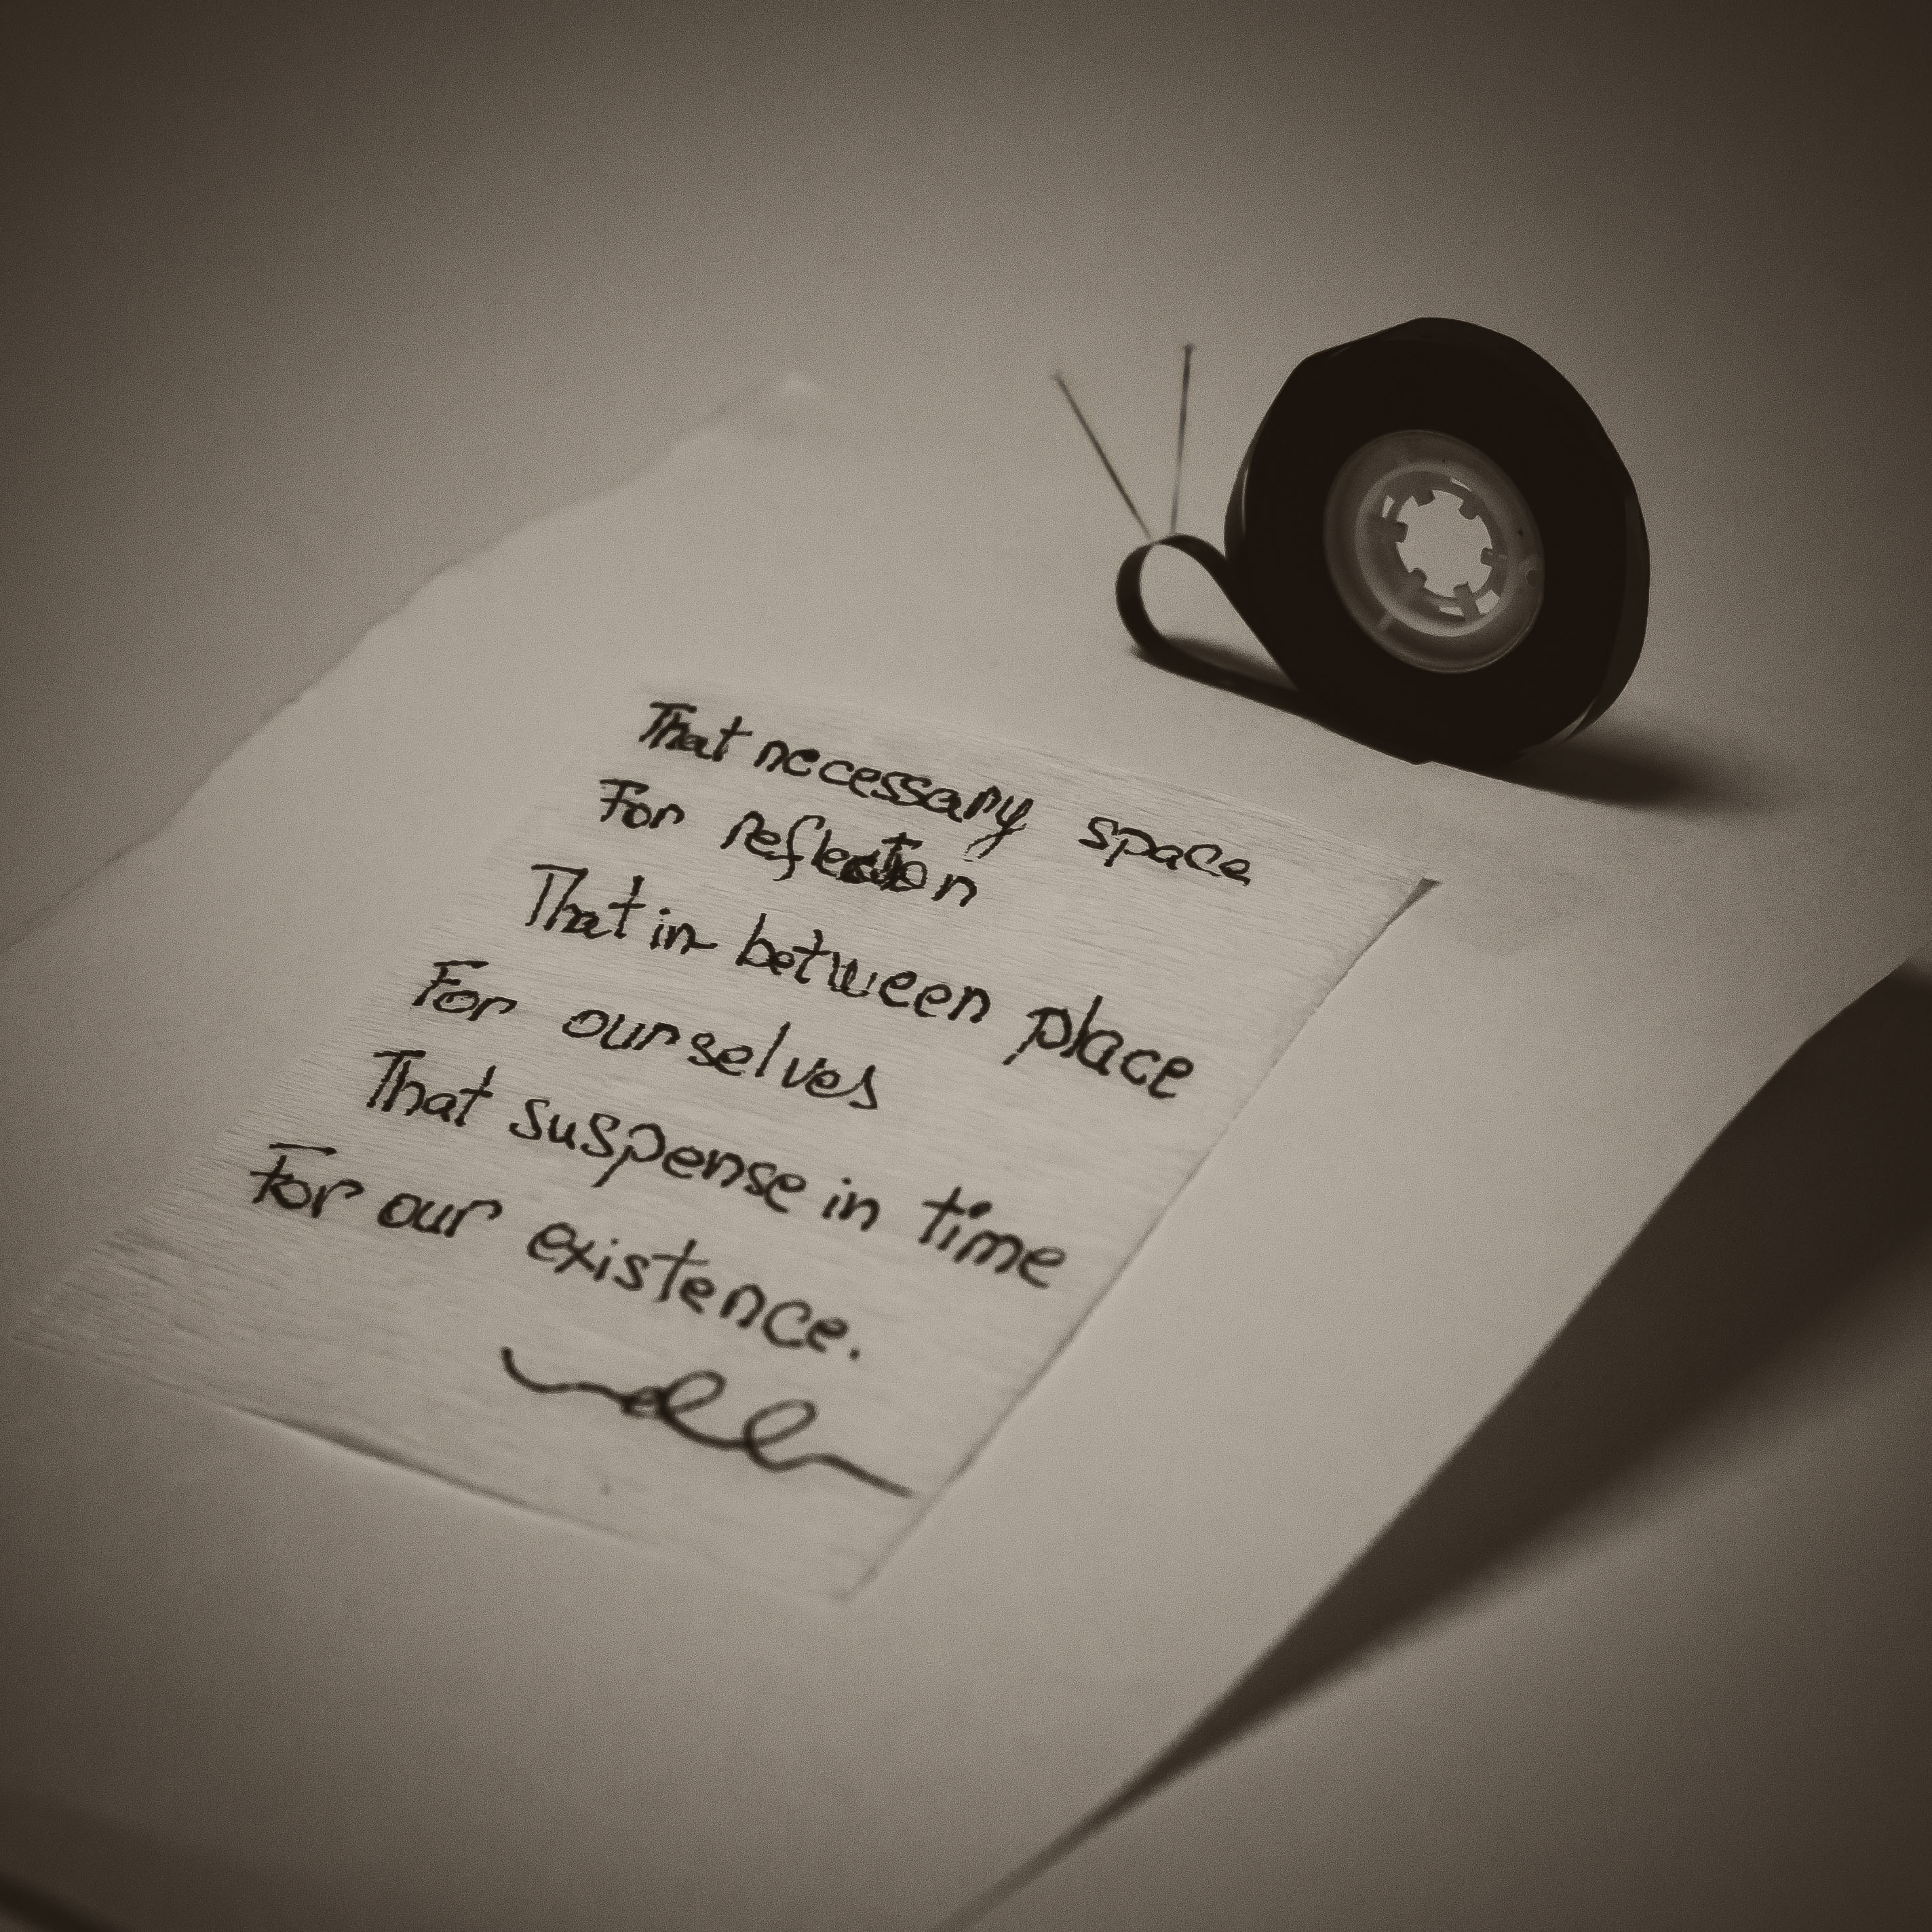 That necessary space
For reflection
That in between place
For ourselves
That suspense in time
For our existence.